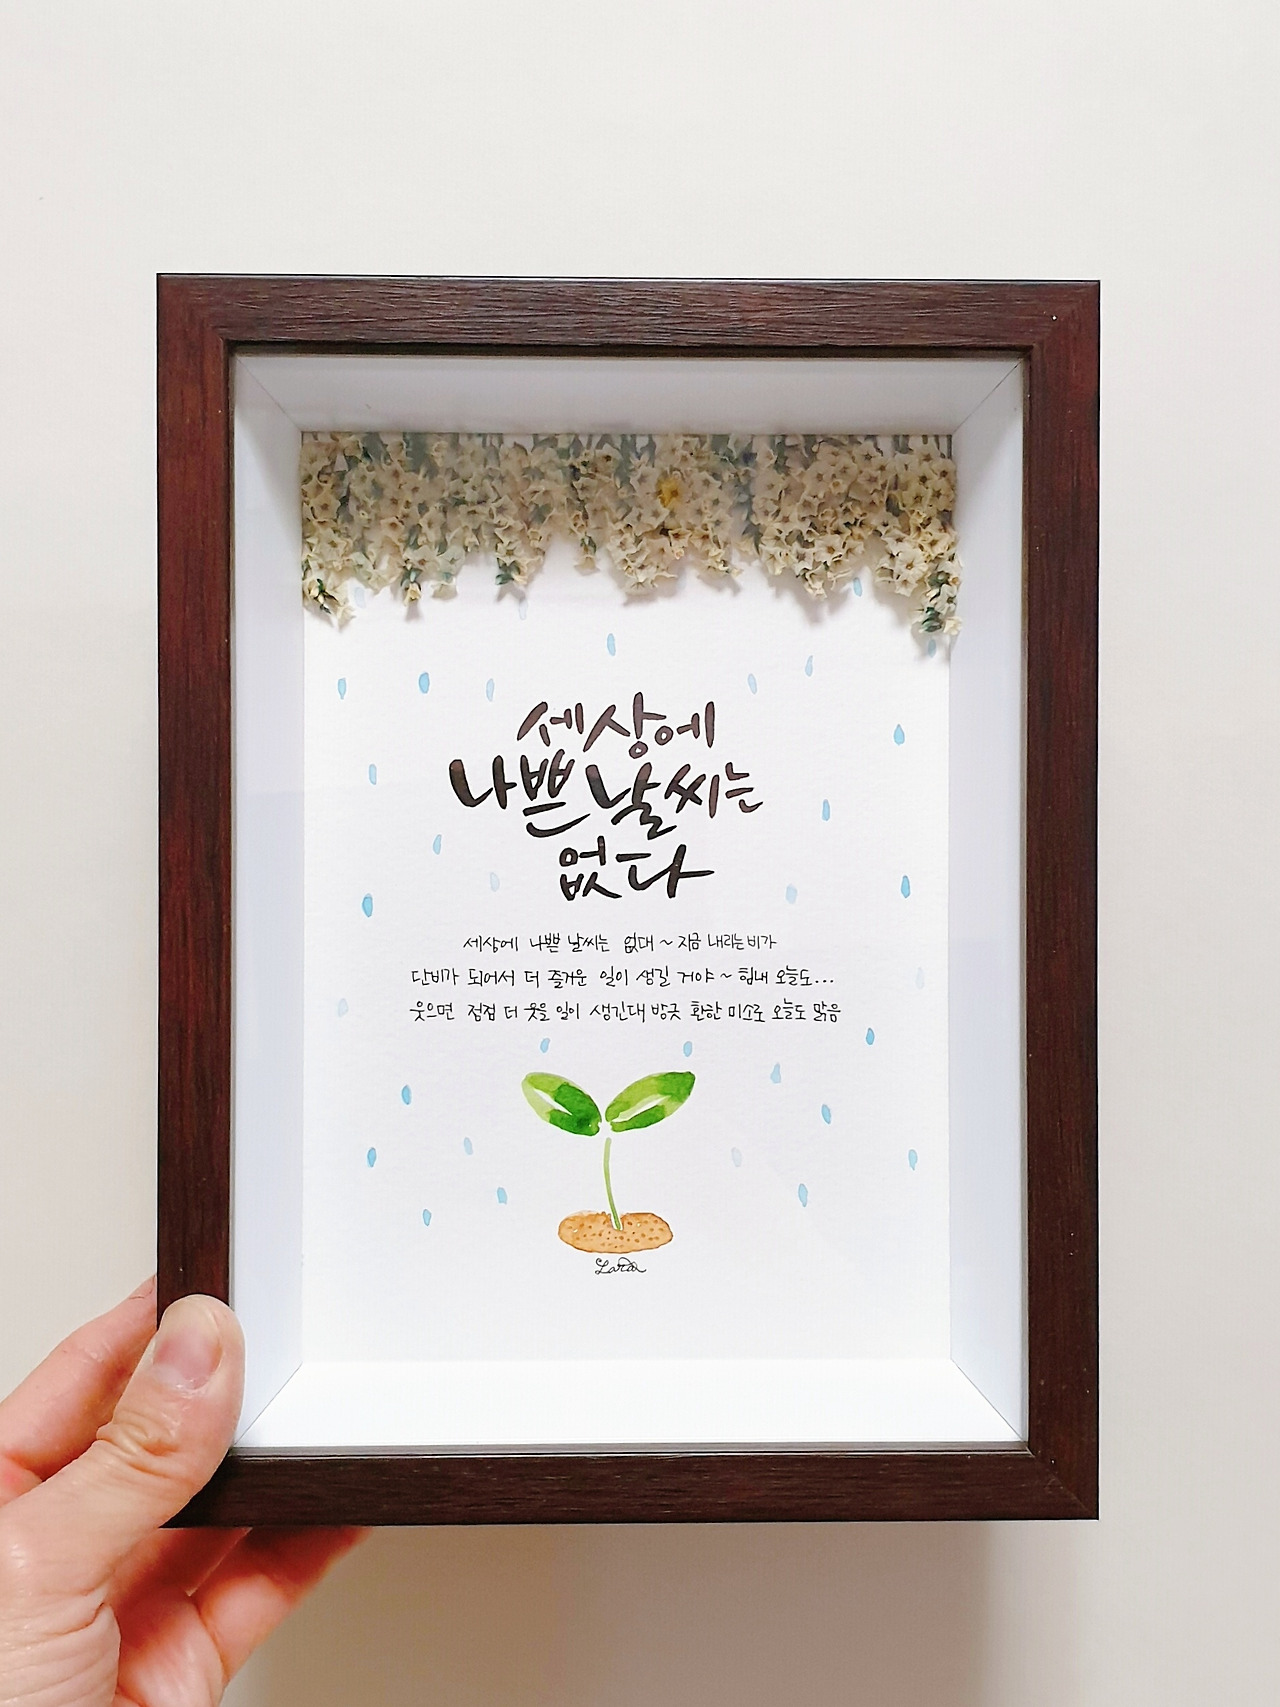 세상에
나쁜 날씨는
없다
세상에 나쁜 날씨는 없대 ~ 지금 내리는 비가
단비가 되어서 더 즐거운 일이 생길 거야 ~ 힘내 오늘도...
웃으면 점점 더 웃을 일이 생긴대 방긋 환한 미소로 오늘도 맑음
Lara